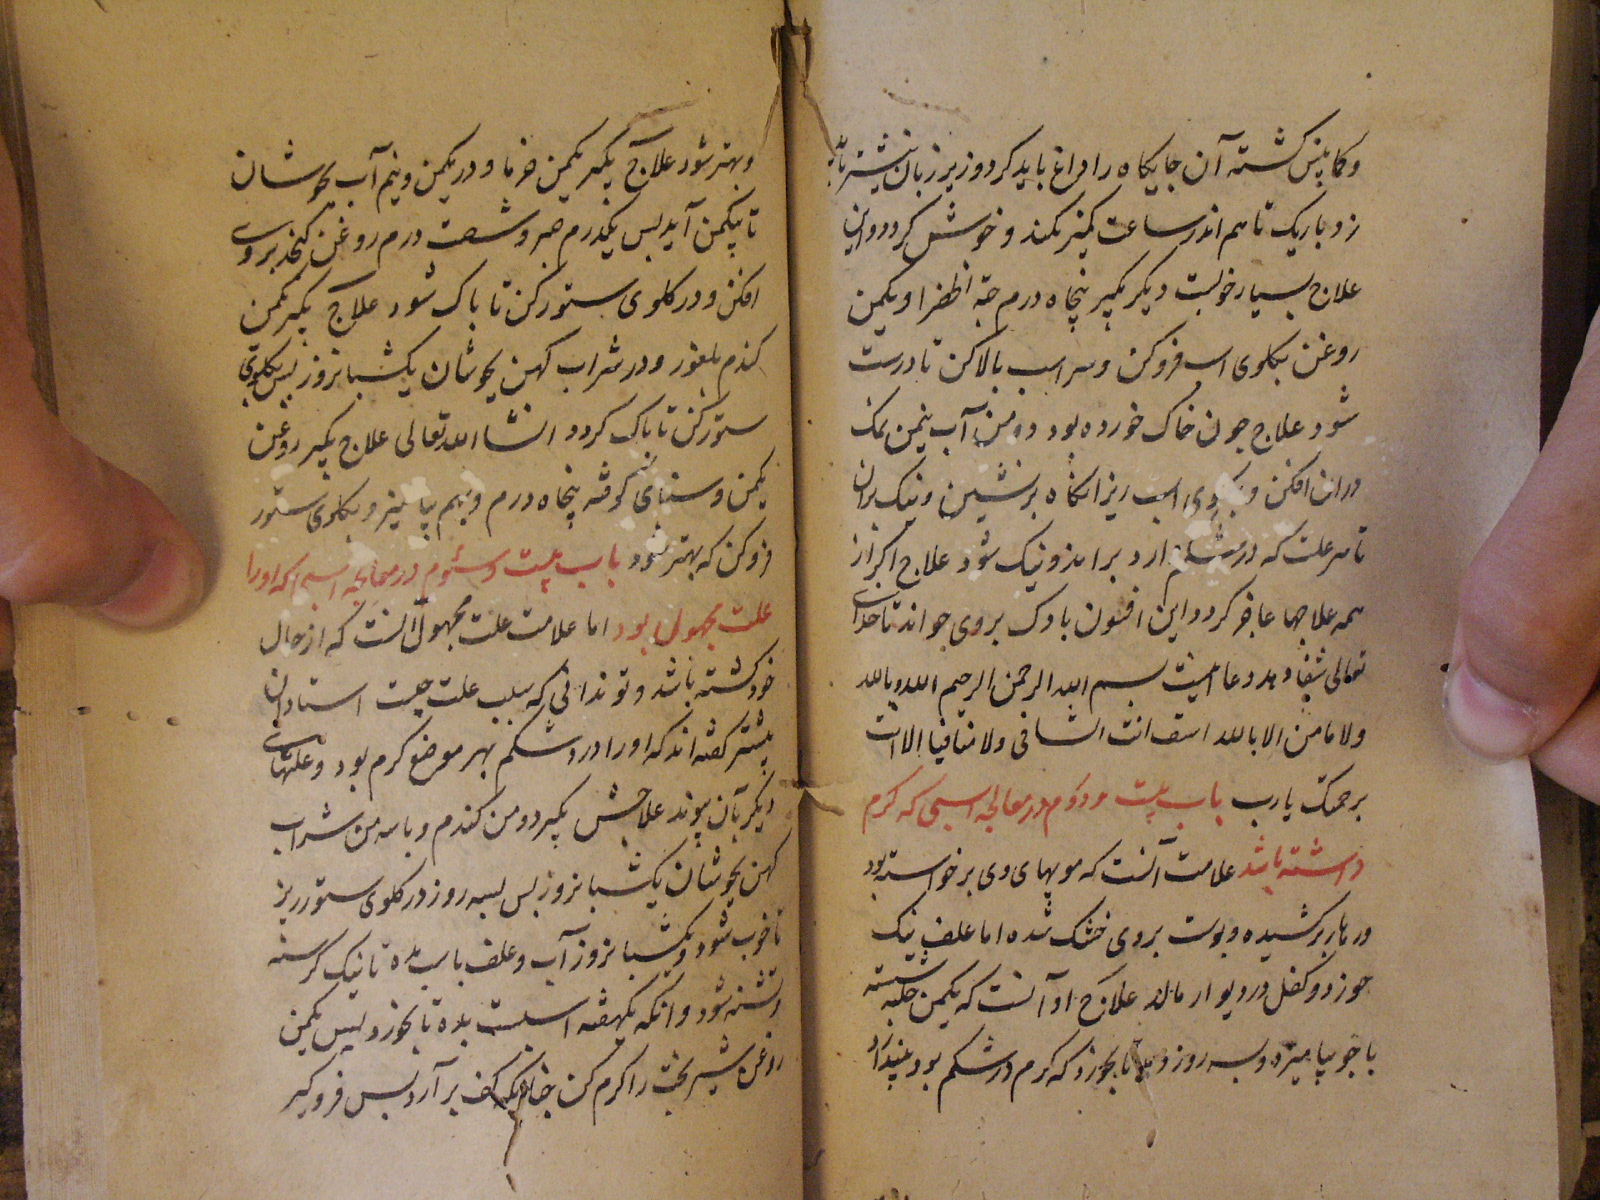 آن جایکاه را فراغ باید کرد و زیر زبان نیشتر
زد و باریک تا هم اندر ساعت کمیز بکند و خوش کردد و این
علاج بسیار خوبست دیکر بکیر پنجاه درم حبة الخضرا و یکمن
روغن بکلوی اسب فرو کن و سر اسب بالا کن تا درست
شود علاج جون خاک خورده بود دو من آب نیمن نمک
دران افکن و بکلوی اسب ریز انکاه برنشین و نیک بران
تا هر علت که در شکم دارد براند و نیک شود علاج اکر از
همه علاجها عاجز کردد این افسون بادک بروی خواند تا خدای
تعالی شفا دهد دعا اینست بسم الله الرحمن الرحیم الله و بالله
انت الشافی ولا شافیا الا انت
برحمتک یا رب باب بیست و دوم در معالجه اسبی که کرم
داشته باشد علامت آنست که مویهای وی برخواسته بود
بر کشیده و پوست بروی خشک شده اما علف نیک
خورد و کفل در دیوار مالد علاج او آنست که یکمن حلبه شسته
با جو بیامیزد و سه روز دهد تا بخورد که کرم در شکم بود بیندازد
و بهتر شود علاج بکیر یکمن خرما و در یکمن و نیم آب بجوشان
تا بیکمن آید پس یکدرم صبر و شصت درم روغن کنجد بروی
افکن و در کلوی ستور کن تا پاک شود علاج بکیر یکمن
کندم بلغور و در شراب کهن بجوشان یکشبانروز پس بکلوی
ستور کن تا پاک کردد انشا الله تعالی علاج بکیر روغن
یکمن و سنای کوفته پنجاه درم و بهم بیامیز و بکلوی ستور
فرو کن که بهتر شود باب بیست و سئوم در معالجه اسبی که او را
علت مجهول بود اما علامت علت مجهول آنست که از حال
خود کشته باشد و تو ندانی که سبب علت چیست استادان
بیشتر کفته اند که او را در شکم بهر موضع کرم بود و علتهای
دیکر بآن پیوند علاجش بکیر دو من کندم و با سه من شراب
کهن بجوشان یکشبانروز پس بسه روز در کلوی ستور ریز
تا خوب شود و یکشبانروز آب و علف باسب مده تا نیک کرسنه
و تشنه شود و انکه یکهفته اسپست بده تا بخورد پس یکمن
روغن شیر پخت را کرم کن چنانکه کف بر آرد پس فرو کیر